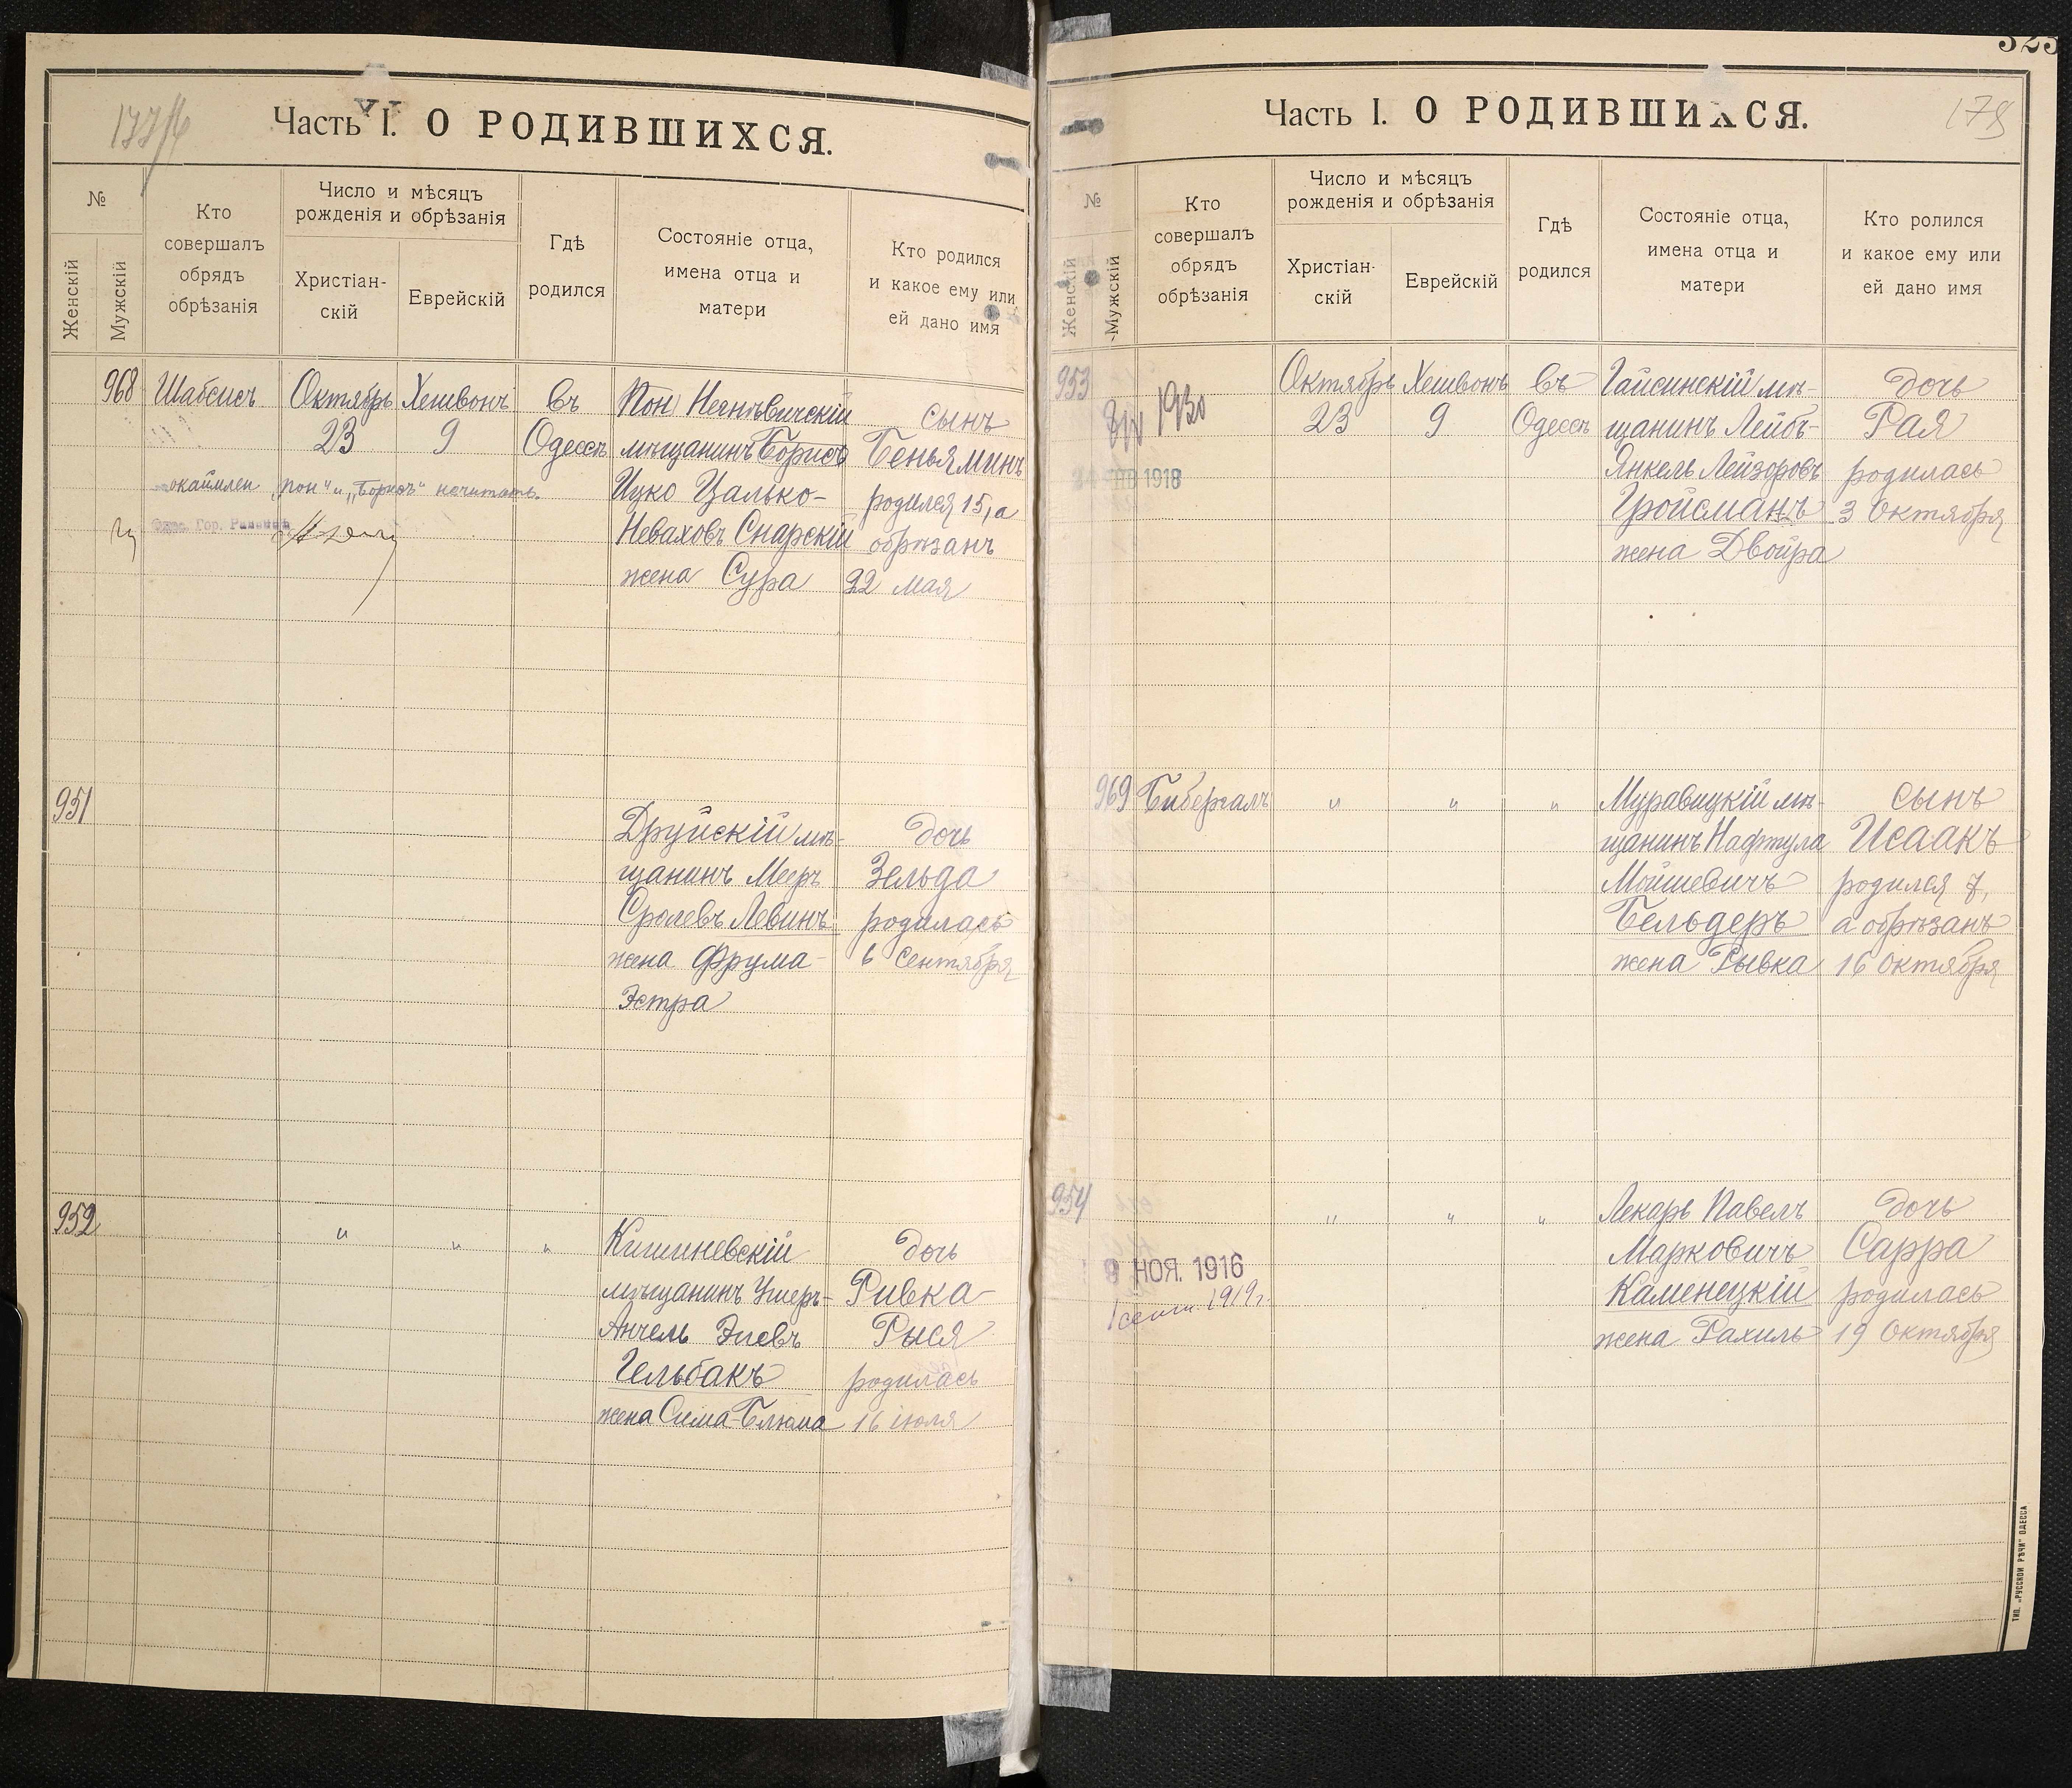 Часть I. О РОДИВШИХСЯ.
№
Женскій
Мужскій
Кто
совершалъ
обрядъ
обрѣзанія
Число и мѣсяцъ
рожденія и обрѣзанія
Христіан-
скій
Еврейскій
Гдѣ
родился
Состояніе отца,
имена отца и
матери
Кто родился
и какое ему или
ей дано имя
968
Шабсисъ
Октябрь
23
Хешвонъ
9
въ
Одессѣ
мѣщанинъ Борисъ
Ицко Цалько-
Неваховъ Снарскій
жена Сура
сынъ
Беньяминъ
родился 15, а
обрѣзанъ
22 мая
"пон" и "Борисъ" нечитать.
Одес. Гор. Раввинъ
951
Друйскій мѣ-
щанинъ Меер
Сролевъ Левинъ
жена Фрума-
Эстра
дочь
Зельда
родилась
6 Сентября
952
" " "
Кишиневскій
мѣщанинъ Ушеръ-
Анчель Эиевъ
Гельбакъ
жена Сима-Блюма
дочь
Ривка-
Рыся
родилась
16 іюля
325
Часть I. О РОДИВШИХСЯ.
178
№
Женскій
Мужскій
Кто
совершалъ
обрядъ
обрѣзанія
Число и мѣсяцъ
рожденія и обрѣзанія
Христіан-
скій
Еврейскій
Гдѣ
родился
Состояніе отца,
имена отца и
матери
Кто ролился
и какое ему или
ей дано имя
953
1930
1918
Октябрь
23
Хешвонъ
9
въ
Одессѣ
Гайсинскій мѣ-
щанинъ Лейбъ-
Янкель Лейзоровъ
Гройсманъ
жена Двойра
дочь
Рая
родилась
3 Октября
969
Бибергалъ
" " "
Муравицкій мѣ-
щанинъ Нафтула
Мойшевичъ
Бельдеръ
жена Рывка
сынъ
Исаакъ
родился 7,
а обрѣзанъ
16 Октября
954
9 НОЯ. 1916
1 сент. 1919 г.
" " "
Лекарь Павелъ
Марковичъ
Каменецкій
жена Рахиль
дочь
Сарра
родилась
19 Октября
ТИП. „РУССКОЙ РѢЧИ" ОДЕССА